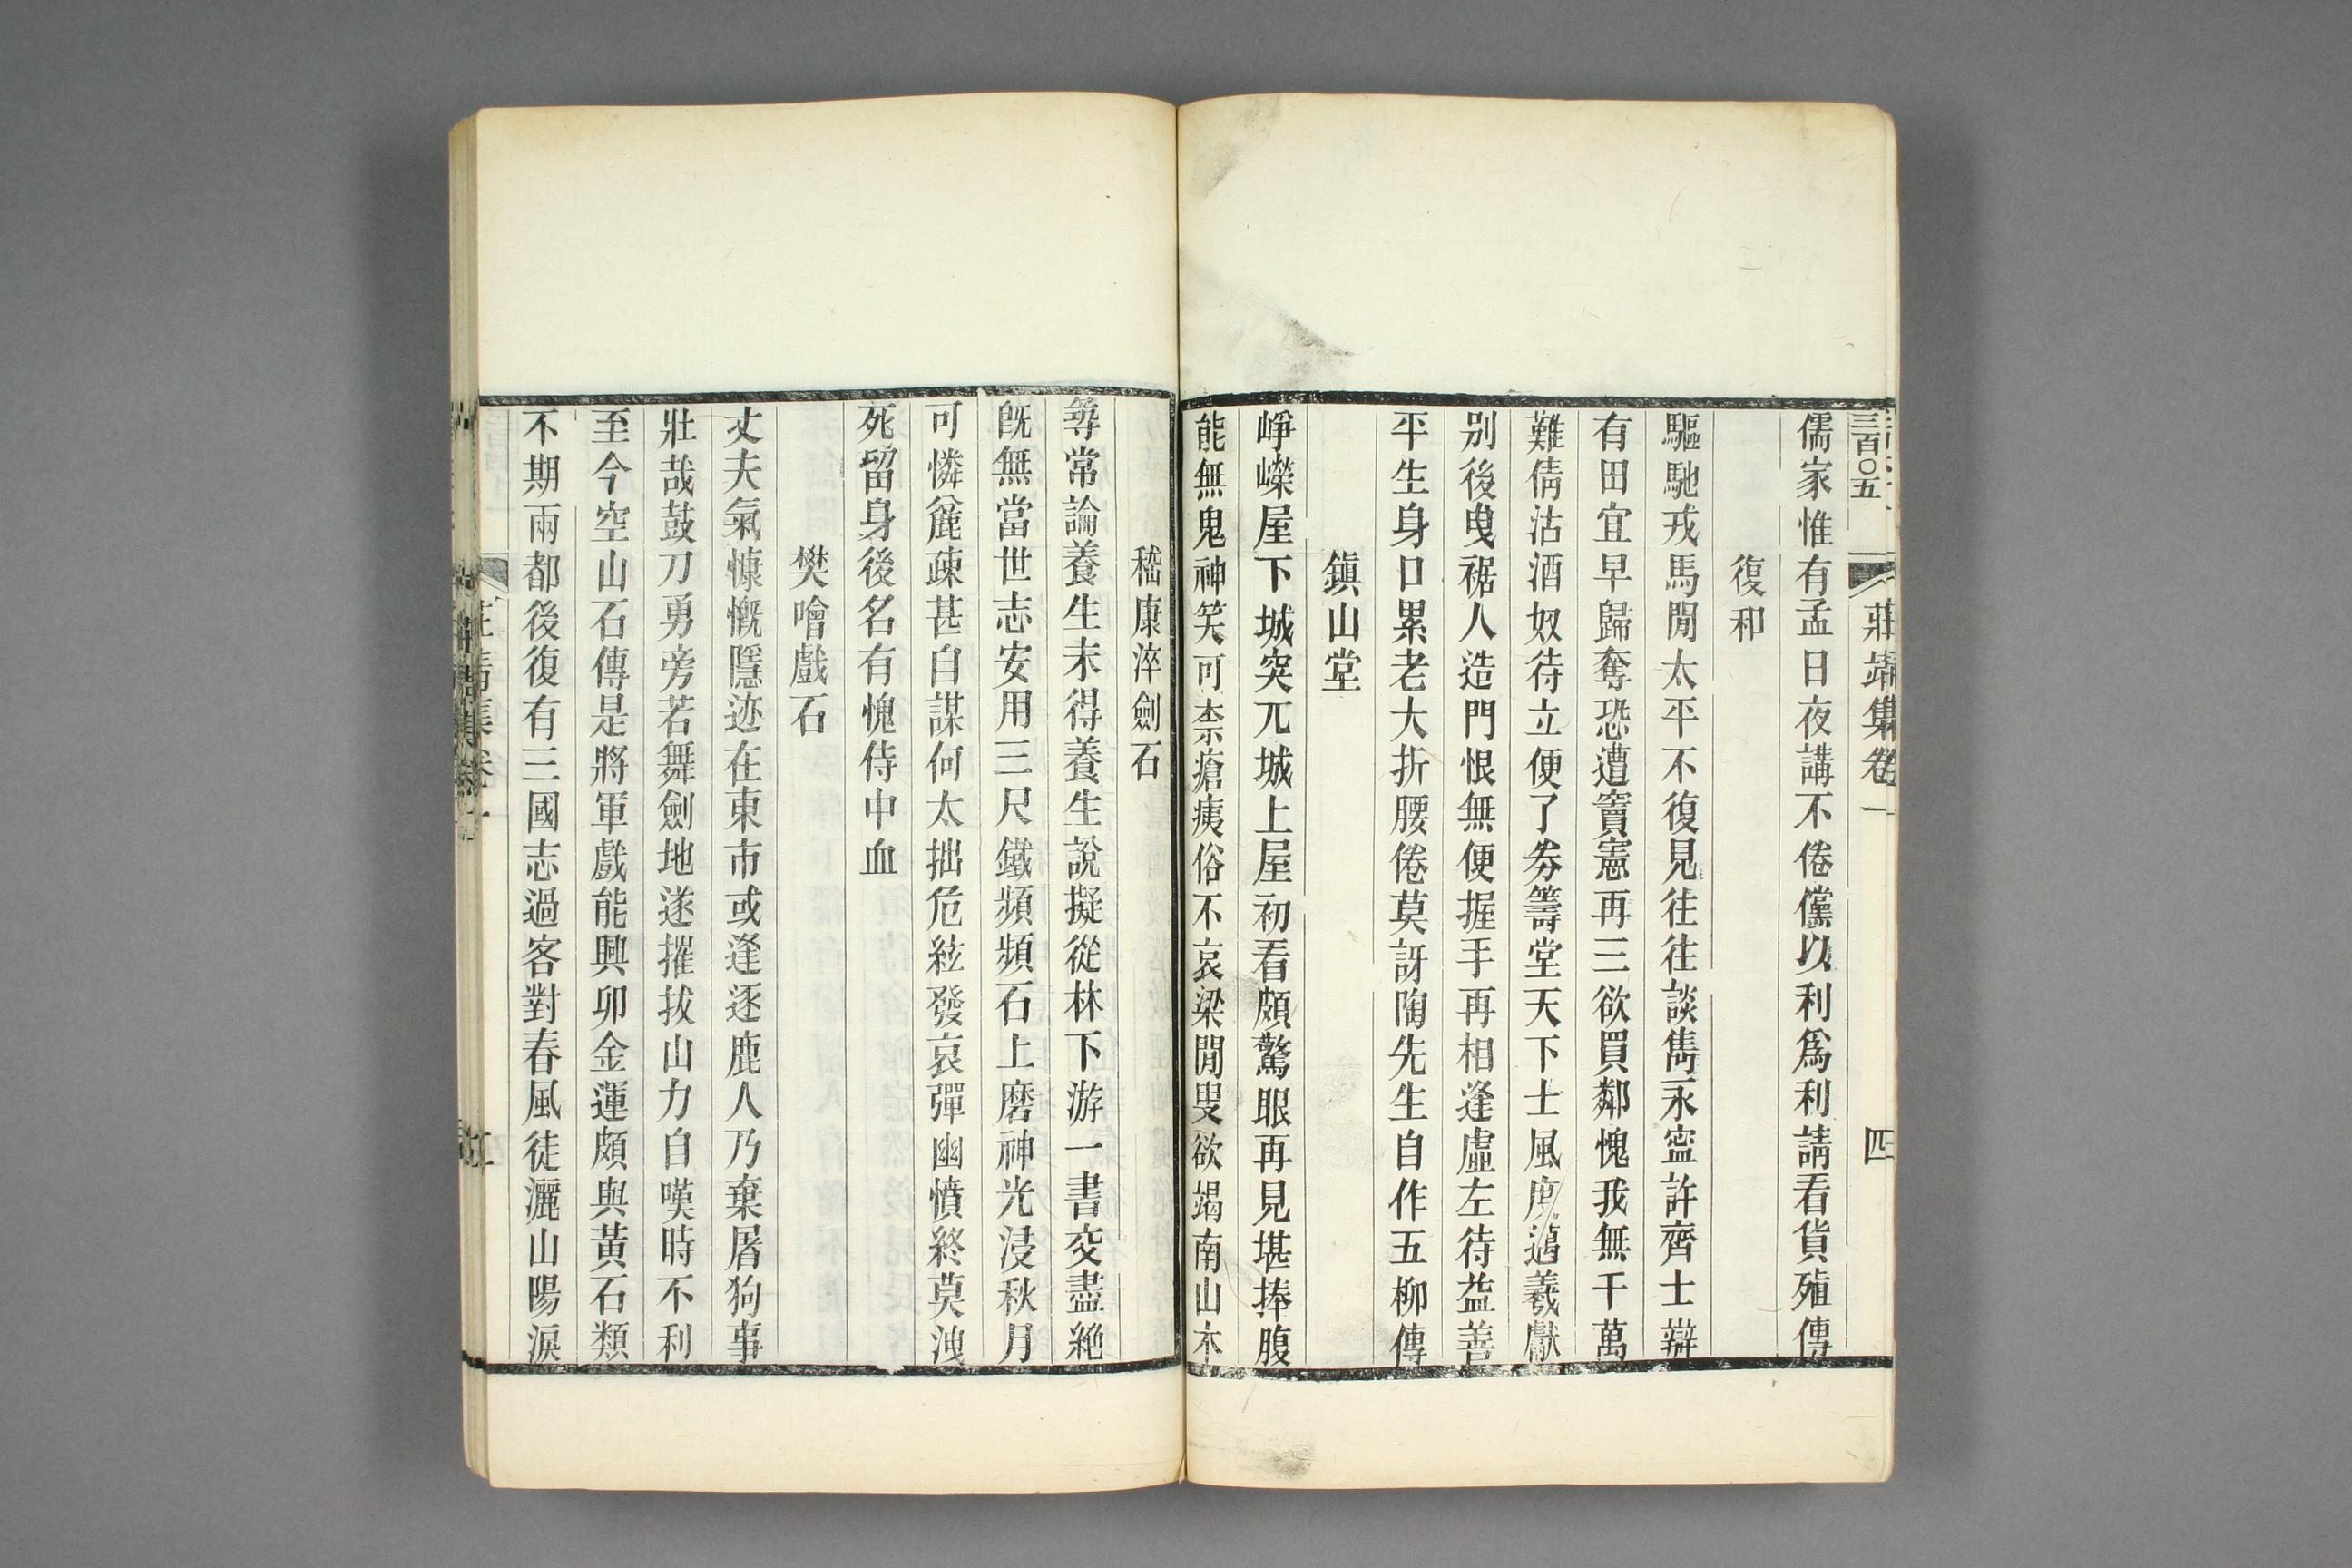 三百〇五
莊靖集卷一
四
儒家惟有孟日夜講不倦儻以利爲利請看貨殖傳
復和
驅馳戎馬閒太平不復見往往談雋永寍許齊士辯
有田宜早歸奪恐遭竇憲再三欲買鄰愧我無千萬
難倩沽酒奴待立便了劵籌堂天下士風度邁羲獻
別後曳裾人造門恨無便握手再相逢虛左待益善
平生身口累老大折腰倦莫訝陶先生自作五柳傳
鎮山堂
崢嶸屋下城突兀城上屋初看頗驚眼再見堪捧腹
能無鬼神笑可柰瘡痍俗不哀梁閒叟欲竭南山木
嵇康淬劍石
尋常論養生未得養生說擬從林下游一書交盡絶
旣無當世志安用三尺鐵頻頻石上磨神光浸秋月
可憐麄疎甚自謀何太拙危絃發哀彈幽憤終莫洩
死留身後名有愧侍中血
樊噲戲石
丈夫氣慷慨隱迹在東市或逢逐鹿人乃棄屠狗事
壯哉鼓刀勇旁若舞劍地遂摧拔山力自嘆時不利
至今空山石傳是將軍戲能興卯金運頗與黃石類
不期兩都後復有三國志過客對春風徒灑山陽淚